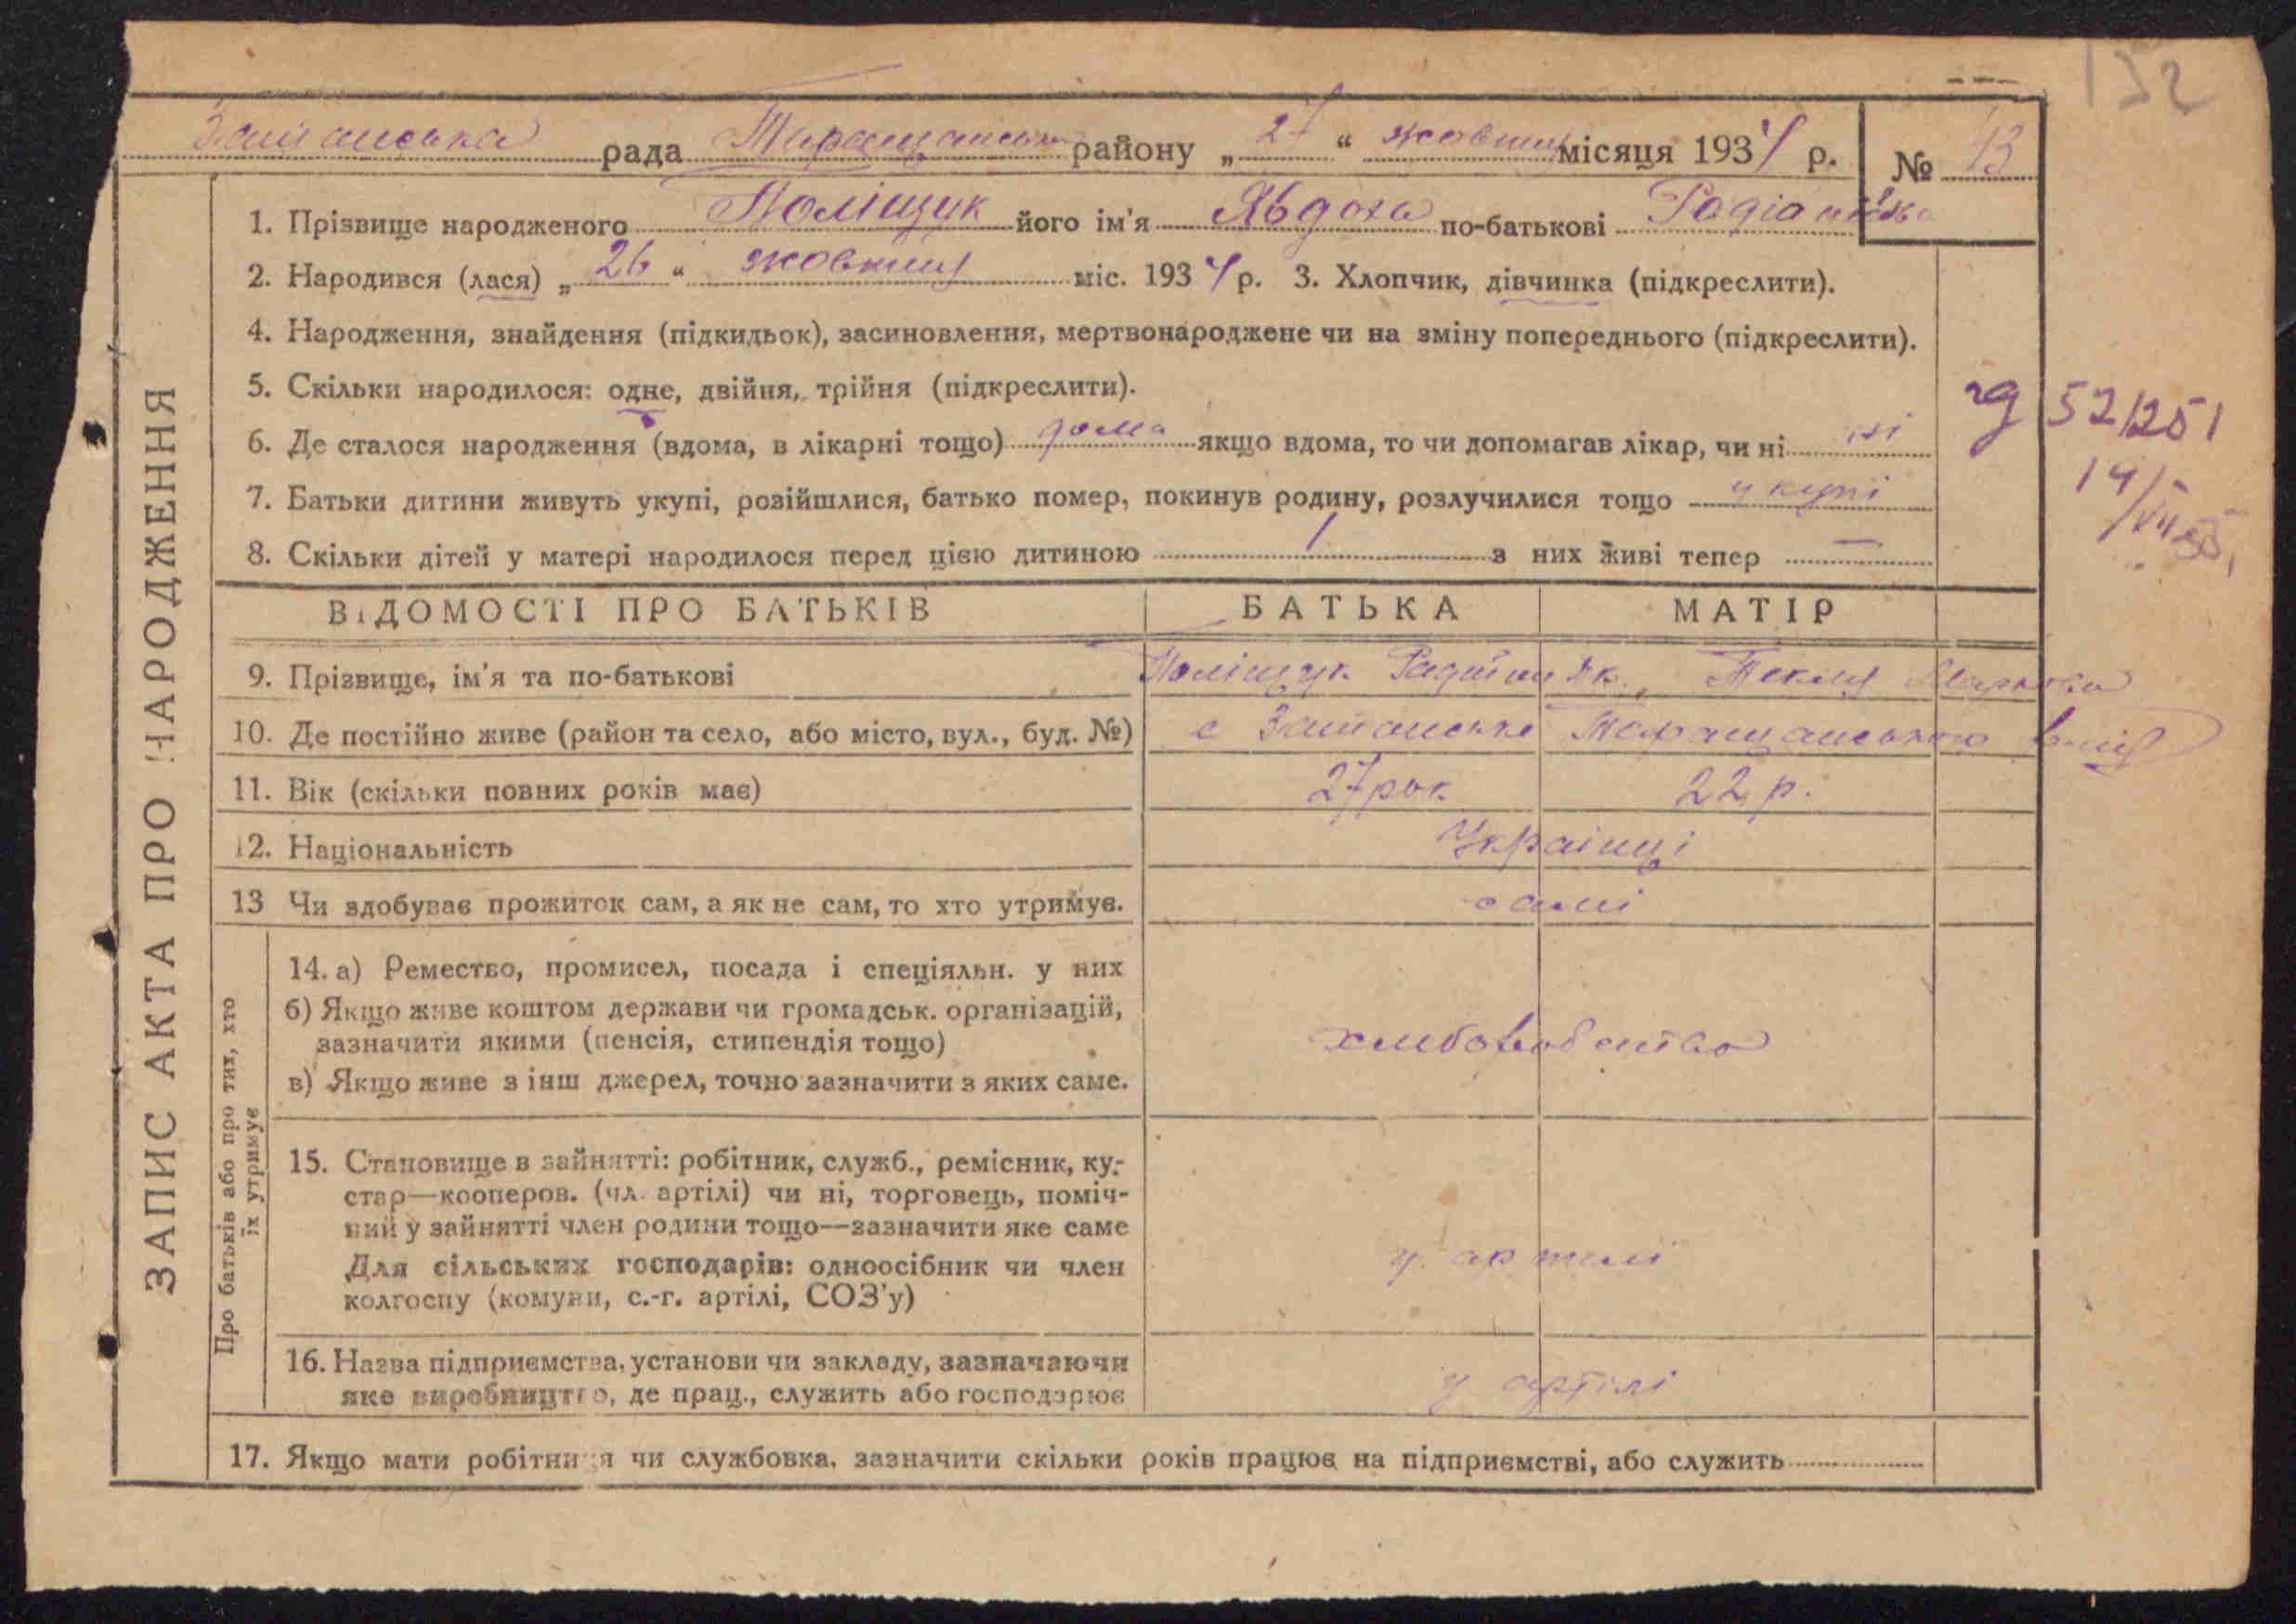 152
рада Таращанськ району „27“ жовтня місяця 1934 р. № 43
1. Прізвище народженого Поліщук його ім'я Явдоха по-батькові
2. Народився (лася) „26“ жовтня міс. 1934 р. 3. Хлопчик, дівчинка (підкреслити).
4. Народження, знайдення (підкидьок), засиновлення, мертвонароджене чи на зміну попереднього (підкреслити).
5. Скільки народилося: одне, двійня, трійня (підкреслити).
6. Де сталося народження (вдома, в лікарні тощо) дома якщо вдома, то чи допомагав лікар, чи ні ні
7. Батьки дитини живуть укупі, розійшлися, батько помер, покинув родину, розлучилися тощо укупі
8. Скільки дітей у матері народилося перед цією дитиною 1 з них живі тепер —
ВІДОМОСТІ ПРО БАТЬКІВ БАТЬКА МАТІР
9. Прізвище, ім'я та по-батькові Поліщук Як. Текля
10. Де постійно живе (район та село, або місто, вул., буд. №) с
11. Вік (скільки повних років має) 27 рок 22 р.
12. Національність Українці
13 Чи здобуває прожиток сам, а як не сам, то хто утримує. самі
14. а) Ремество, промисел, посада і спеціяльн. у них
б) Якщо живе коштом держави чи громадськ. організацій,
зазначити якими (пенсія, стипендія тощо)
в) Якщо живе з інш джерел, точно зазначити з яких саме.
15. Становище в зайнятті: робітник, служб., ремісник, ку-
стар—кооперов. (чл. артілі) чи ні, торговець, поміч-
ний у зайнятті член родини тощо—зазначити яке саме
Для сільських господарів: одноосібник чи член
колгоспу (комуни, с.-г. артілі, СОЗ'у)
у артилі
16. Назва підприємства, установи чи закладу, зазначаючи
яке виробництво, де прац., служить або господарює
у артілі
17. Якщо мати робітниця чи службовка, зазначити скільки років працює на підприємстві, або служить
ЗАПИС АКТА ПРО НАРОДЖЕННЯ
Про батьків або про тих, хто
їх утримує